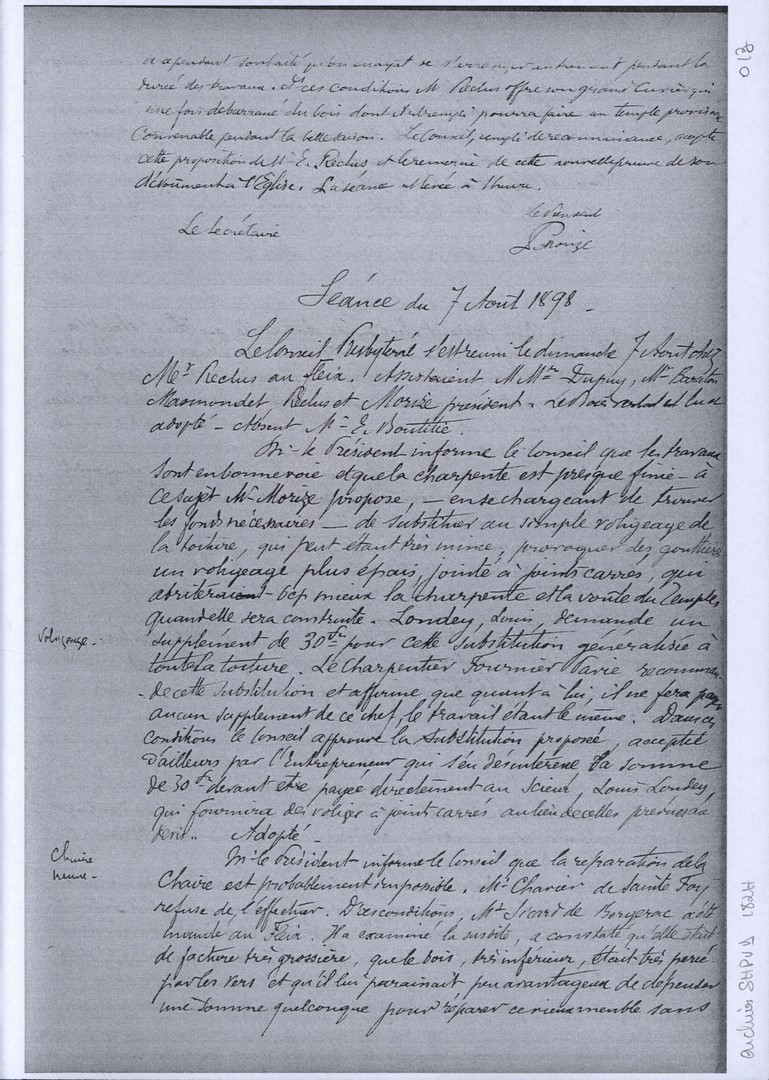 a cependant souhaité qu'on essayât de s'arranger autrement pendant la
durée des travaux. Ds ces conditions Mr Reclus offre son grand Cuvier qui
une fois débarrassé du bois dont il est rempli pourra faire un temple provisoire
Convenable pendant la belle saison. Le Conseil, rempli de reconnaissance, accepte
cette proposition de Mr E. Reclus et le remercie de cette nouvelle preuve de son
dévouement à l'Eglise. La séance est levée à heure.
Le Secrétaire
Le Président
P. Morize
Séance du 7 Août 1898 -
Le Conseil Presbytéral s'est réuni le dimanche 7 Août chez
Mr Reclus au Fleix. Assistaient MMrs Dupuy, Mr
Masmondet Reclus et Morize président - Le est lu et
adopté - Absent Mr E. Boutitie.
Mr le Président informe le Conseil que les travaux
sont en bonne voie et que la charpente est presque finie - à
ce sujet Mr Morize propose, - en se chargeant de trouver
les fonds nécessaires - de substituer au simple voligeage de
la toiture, qui peut étant très mince, provoquer des gouttières
un voligeage plus épais, jointé à joints carrés, qui
abriterait bcp mieux la charpente et la voute du temple
quand elle sera construite. Londey, Louis, demande un
supplément de 30 frs pour cette substitution généralisée à
toute la toiture. Le Charpentier Fournier Varie recomman-
-de cette substitution et affirme que quant à lui, il ne fera payer
aucun supplément de ce chef, le travail étant le même. Dans ces
conditions le Conseil approuve la substitution proposée, acceptée
d'ailleurs par l'Entrepreneur qui s'en désintéresse la somme
de 30 frs devant etre payée directement au Scieur, Louis Londey,
qui fournira des voliges à joints carrés au lieu de celles prévues au
devis. Adopté
voligeage -
Mr le Président informe le Conseil que la réparation de la
Chaire est probablement impossible. Mr Charier de Sainte Foy
refuse de l'effectuer. Ds ces conditions, Mr Sicard de Bergerac a été
mandé au Fleix. Il a examiné la susdite, a constaté qu'elle était
de facture très grossière, que le bois, très inférieur, était très percé
par les vers et qu'il lui paraissait peu avantageux de dépenser
une somme quelconque pour réparer ce vieux meuble sans
Chaire
neuve -
013
archives SHPVD 1824